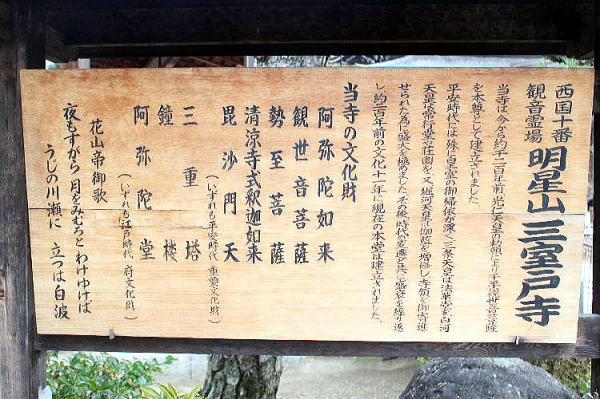 西国十番
観音霊場
明星山三室戸寺
当寺は今から約千二百年前光仁天皇の勅願により千手観世音菩薩
を本尊として建立されました。
平安時代には殊に皇室の御帰依が深く、三条天皇は法華堂を白河
天皇は常行堂の荘園を、又堀河天皇は伽藍を増修し寺領を御寄進
せられた為に盛大を極めました。その後、時代を遷ると共に盛衰を繰り返
し、約二百年前の文化十一年に現在の本堂は建立されました。
当寺の文化財
阿弥陀如来
観世音菩薩
勢至菩薩
清涼寺式釈迦如来
毘沙門天
（いずれも平安時代 重要文化財）
三重塔
鐘楼
阿弥陀堂
（いずれも江戸時代 府文化財）
花山帝御歌
夜もすがら 月をみむろと わけゆけば
うじの川瀬に 立つは白波